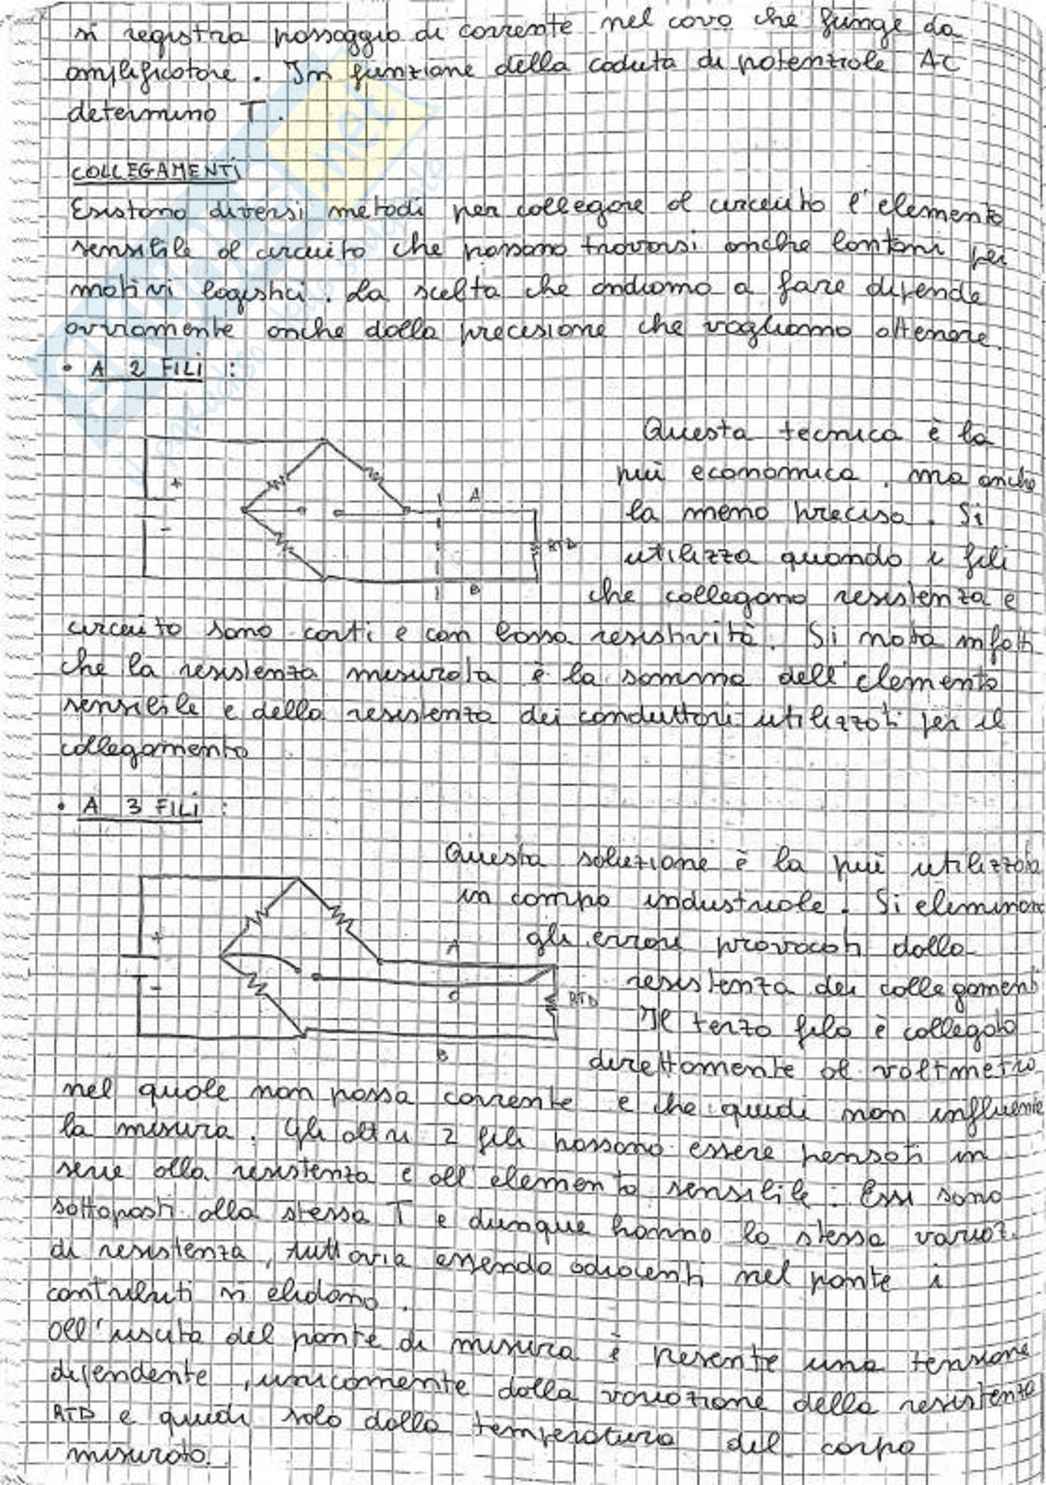 si registra passaggio di corrente nel cavo che funge da
amplificatore. In funzione della caduta di potenziale AC
determino T.
COLLEGAMENTI
Esistono diversi metodi per collegare al circuito l'elemento
sensibile al circuito che possono trovarsi anche lontani per
motivi logistici. La scelta che andiamo a fare dipende
ovviamente anche dalla precisione che vogliamo ottenere.
• A 2 FILI :
Questa tecnica è la
più economica, ma anche
la meno precisa. Si
utilizza quando i fili
che collegano resistenza e
circuito sono corti e con bassa resistività. Si nota infatti
che la resistenza misurata è la somma dell'elemento
sensibile e della resistenza dei conduttori utilizzati per il
collegamento
+
-
A
RTD
B
• A 3 FILI :
Questa soluzione è la più utilizzata
in campo industriale. Si eliminano
gli errori provocati dalla
resistenza dei collegamenti
Il terzo filo è collegato
direttamente al voltmetro
nel quale non passa corrente e che quindi non influenza
la misura. Gli altri 2 fili possono essere pensati in
serie alla resistenza e all'elemento sensibile. Essi sono
sottoposti alla stessa T e dunque hanno la stessa variaz.
di resistenza, tuttavia essendo adiacenti nel ponte i
contributi si elidono.
+
-
A
C
RTD
B
All'uscita del ponte di misura è presente una tensione
dipendente, unicamente dalla variazione della resistenza
RTD e quindi solo dalla temperatura del corpo
misurato.